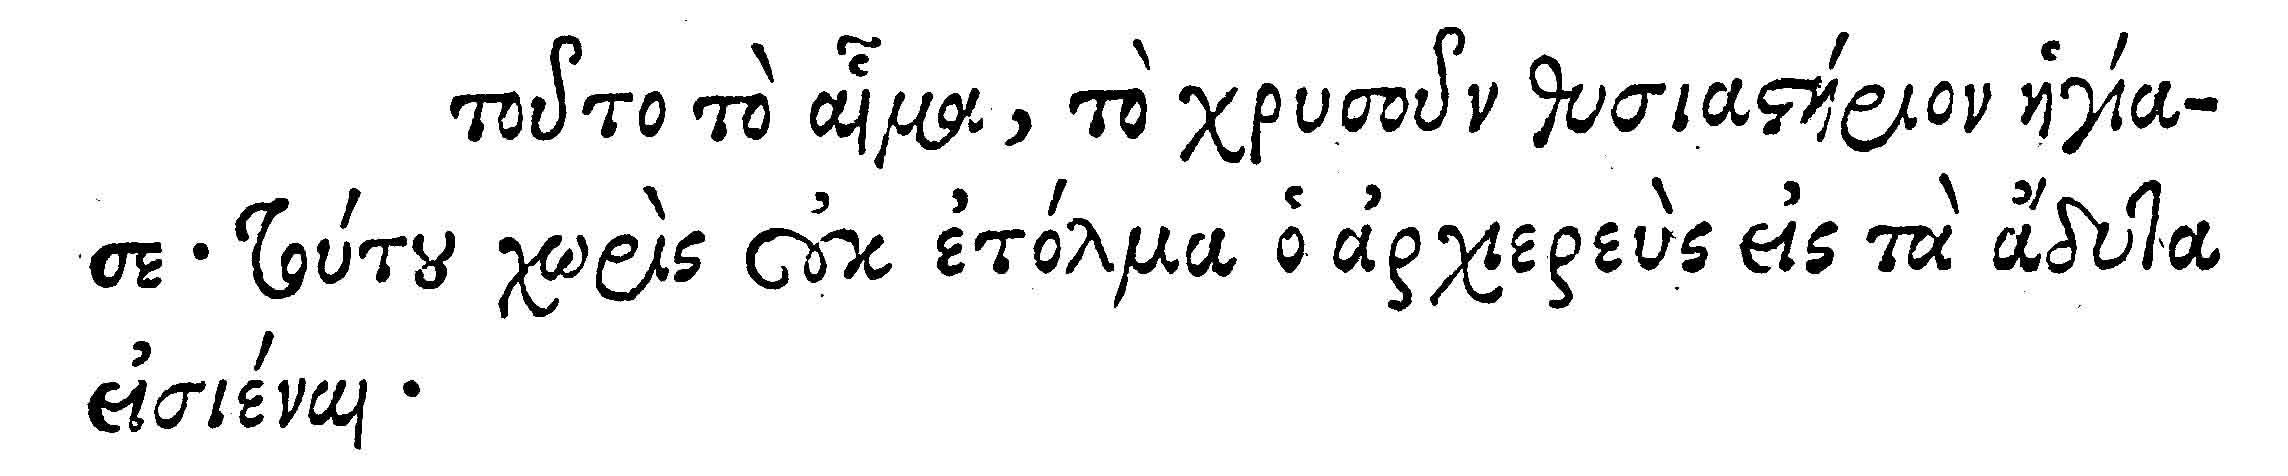 τοῦτο τὸ αἷμα, τὸ χρυσοῦν θυσιαστήριον ἡγία-
σε· τούτου χωρὶς οὐκ ἐτόλμα ὁ ἀρχιερεὺς εἰς τὰ ἄδυτα
εἰσιέναι·